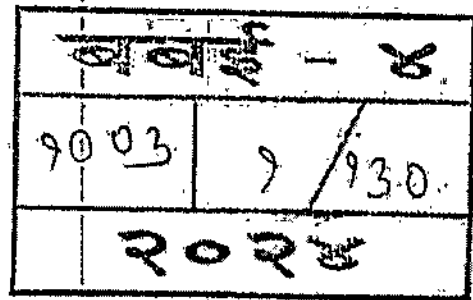 बबई - ४
१००३ १/१३०.
२०२४